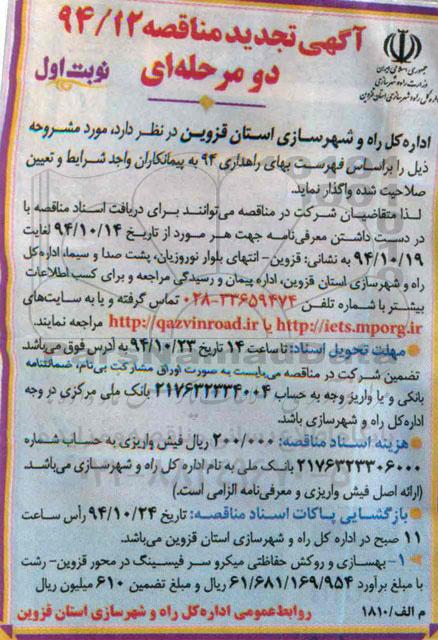 آگهی تجدید مناقصه ۹۴/۱۲
دو مرحله‌ای
نوبت اول
جمهوری اسلامی ایران
وزارت راه و شهرسازی
اداره کل راه و شهرسازی استان قزوین
اداره کل راه و شهرسازی استان قزوین در نظر دارد، مورد مشروحه
ذیل را براساس فهرست بهای راهداری ۹۴ به پیمانکاران واجد شرایط و تعیین
صلاحیت شده واگذار نماید.
لذا متقاضیان شرکت در مناقصه می‌توانند برای دریافت اسناد مناقصه با
در دست داشتن معرفی‌نامه جهت هر مورد از تاریخ ۹۴/۱۰/۱۴ لغایت
۹۴/۱۰/۱۹ به نشانی: قزوین- انتهای بلوار نوروزیان، پشت صدا و سیما، اداره کل
راه و شهرسازی استان قزوین، اداره پیمان و رسیدگی مراجعه و برای کسب اطلاعات
بیشتر با شماره تلفن ۳۳۶۵۹۴۷۴-۰۲۸ تماس گرفته و یا به سایت‌های
http://iets.mporg.ir یا http://qazvinroad.ir مراجعه نمایند.
مهلت تحویل اسناد: تا ساعت ۱۴ تاریخ ۹۴/۱۰/۲۳ به آدرس فوق می‌باشد.
تضمین شرکت در مناقصه می‌بایست به صورت اوراق مشارکت بی‌نام، ضمانتنامه
بانکی و یا واریز وجه به حساب ۲۱۷۶۳۲۳۳۴۰۰۴ بانک ملی مرکزی در وجه
اداره کل راه و شهرسازی باشد.
هزینه اسناد مناقصه: ۲۰۰/۰۰۰ ریال فیش واریزی به حساب شماره
۲۱۷۶۳۲۳۳۰۶۰۰۰ بانک ملی به نام اداره کل راه و شهرسازی می‌باشد.
(ارائه اصل فیش واریزی و معرفی‌نامه الزامی است.)
بازگشایی پاکات اسناد مناقصه: تاریخ ۹۴/۱۰/۲۴ رأس ساعت
۱۱ صبح در اداره کل راه و شهرسازی استان قزوین می‌باشد.
۱- بهسازی و روکش حفاظتی میکرو سرفیسینگ در محور قزوین- رشت
با مبلغ برآورد ۶۱/۶۸۱/۱۶۹/۹۵۴ ریال و مبلغ تضمین ۶۱۰ میلیون ریال
م الف/۱۸۱۰ روابط عمومی اداره کل راه و شهرسازی استان قزوین